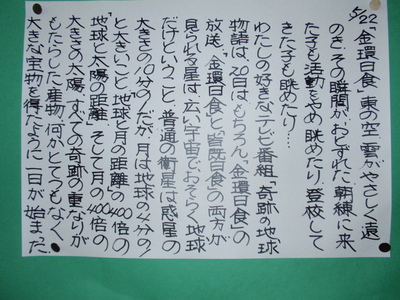 5/22 「金環日食」東の空、雲がやさしく還
のき、その瞬間が、おとずれた。朝練に来
た子も活動をやめ、眺めたり、登校して
きた子も眺めたり…
わたしの好きなテレビ番組「奇跡の地球
物語」は、20日はもちろん「金環日食」の
放送。「金環日食」と「皆既日食」の両方が
見られる星は、広い宇宙でおそらく地球
だけということ。普通の衛星は惑星の
大きさの10分の1だが、月は地球の4分の1
と大きいこと、「地球と月の距離」の400倍の
「地球と太陽の距離」そして月の400倍の
大きさの太陽。すべての奇跡の重なりが
もたらした産物。何かとてつもなく、
大きな宝物を得たように一日が始まった。